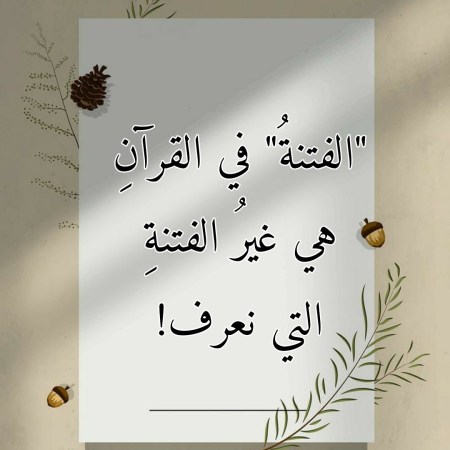 "الفتنةُ" في القرآنِ
هي غيرُ الفتنةِ
التي نعرف!